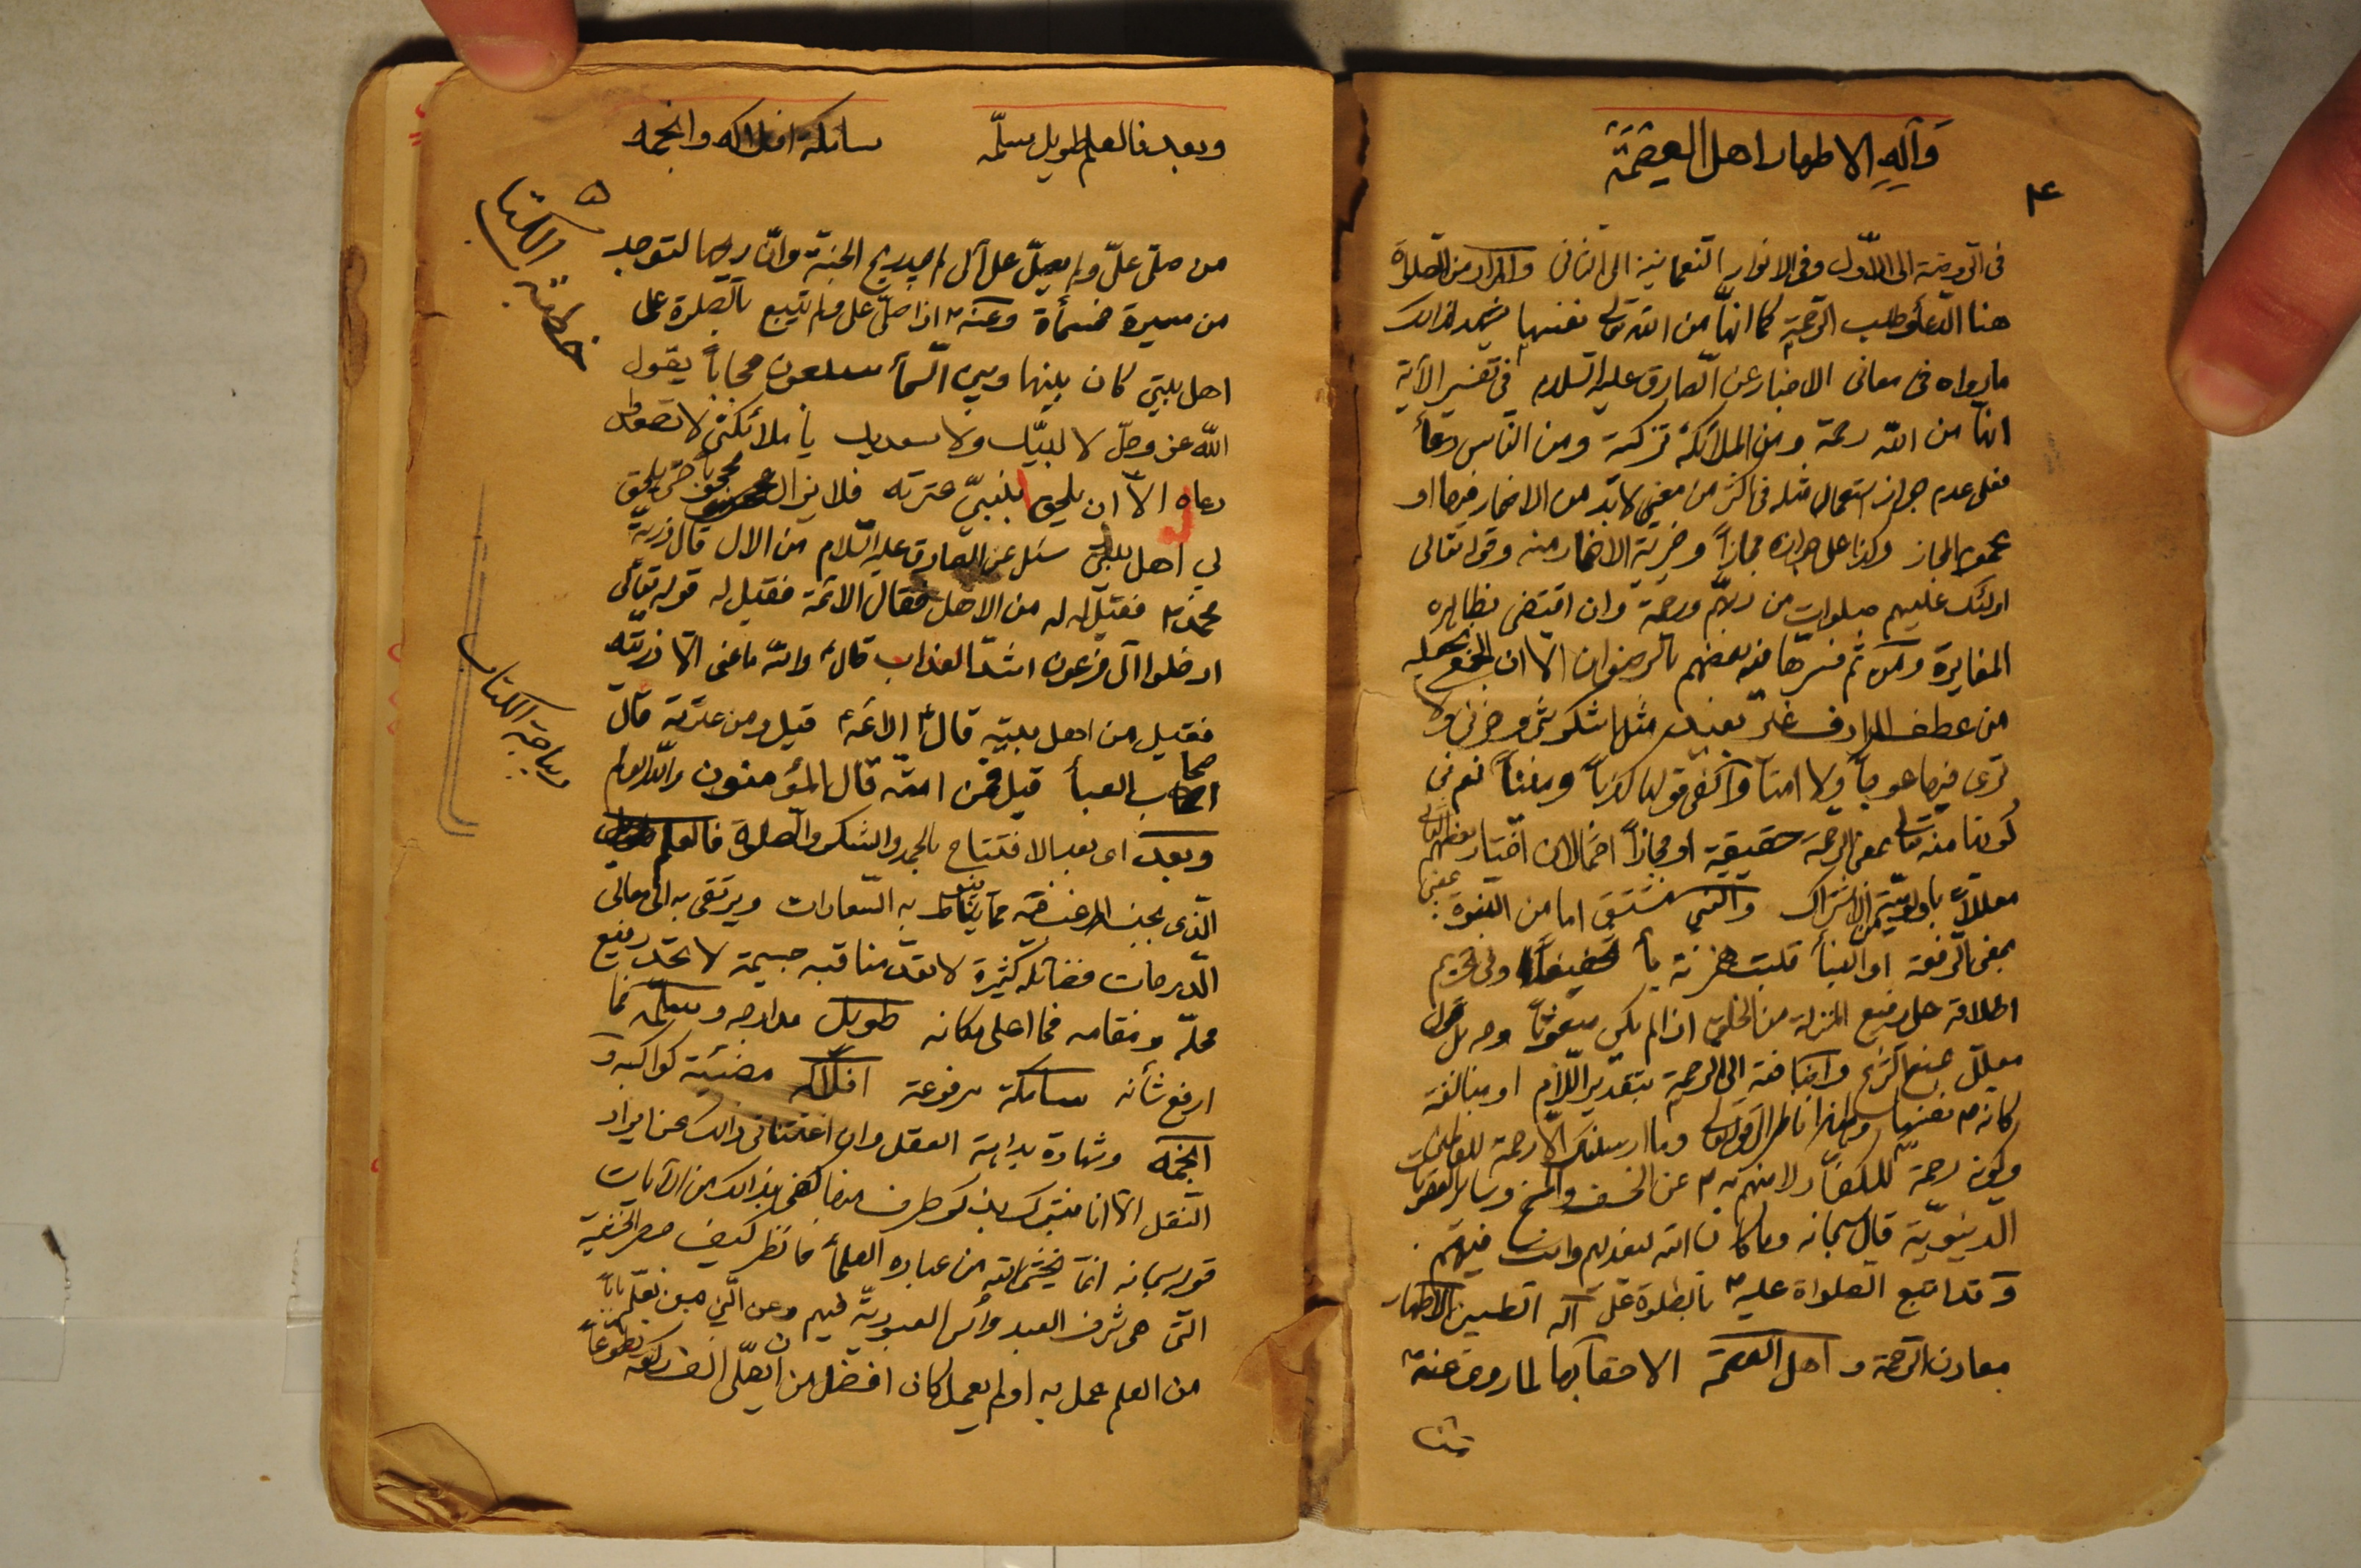 وَآلِهِ الاطهار اهل العِصْمَة
٤
فى الروضة الى الاول وفى الانوار النعمانية الى الثانى والمراد من الصلوة
هنا الدعأ وطلب الرحمة كما انها من الله تعالى نفسها يشهد لذلك
ما رواه فى معانى الاخبار عن الصادق عليه السلام فى تفسير الآية
انها من الله رحمة ومن الملائكة تزكية ومن الناس دعأ
فعلى عدم جواز استعمال مثله فى اكثر من معنى لا بد من الاضمار فيها او
عموم المجاز وكذا على جوازه مجازاً وخيرية الاضمار منه وقوله تعالى
اولئك عليهم صلوات من ربهم ورحمة وان اقتضى بظاهره
المغايرة ومن ثم فسرها فيه بعضهم بالرضوان الا ان
من عطف المرادف غير بعيد مثل اشكو بثى وحزنى ولا
ترى فيها عوجاً ولا امتاً والفى قولها كذباً وميناً نعم فى
كونها منه تعالى بمعنى الرحمة حقيقية او مجازاً احتمالان اختار بعضهم الثانى
معللاً باولويته من الاشتراك والنبى مشتق اما من النبوة بمعنى
بمعنى الرفعة او النبأ قلبت همزته يأ تخفيفاً وفى تحريم
اطلاقه على رفيع المنزلة من الخلق اذا لم يكن مبعوثاً وجه بل قول
معلل بمنع الشرع واضافته الى الرحمة بتقدير اللام او مبالغة
كانه م نفسها ولهذا ناظر الى قوله تعالى وما ارسلناك الا رحمة للعالمين
وكونه رحمة للكفار لامنهم به م عن الخسف والمسخ وساير العقوبات
الدنيوية قال سبحانه وما كان الله ليعذبهم وانت فيهم
وقد اتبع الصلواة عليه م بالصلوة على آله الطيبين الاطهار
معادن الرحمة و اهل العصمة الاحقآ بها لما روى عنه م
وبعد فالعلم طويل سلّمه سامكة افلاكه وانجمه
٥
خطبة الكتاب
من صلى علىّ ولم يصلّ على آلى لم يجد ريح الجنة وانّ ريحها لتوجد
من مسيرة خمسمأة وعنه م اذا صلى على ولم يتبع بالصلوة على
اهل بيتى كان بينها وبين السمأ سبعون حجاباً يقول
الله عز وجلّ لا لبيك ولا سعديك يا ملائكتى لا تصعدوا
دعاه الا ان يلحق بنبيى عترته فلا يزال محجوباً حتى يلحق
بي اهل بيتى سئل عن الصادق عليه السلام من الال قال ذرية
محمد م فقيل له من الاهل فقال الائمة فقيل له قوله تعالى
ادخلوا آل فرعون اشد العذاب قال ع والله ما عنى الا ذريته
فقيل من اهل بيته قال ع الائمة ع قيل ومن عترته قال
اصحاب العبأ قيل فمن امته قال المؤمنون
ديباجة الكتاب
وبعد اى بعد الافتتاح بالحمد والشكر والصلوة فالعلم
الذى مما يناط به السعادات ويرتقى به الى معالى
الدرجات فضائله كثيرة لا تعدّ مناقبه جسيمة لا تحدّ رفيع
محله ومقامه فما اعلى مكانه طويل مدارجه وسلّمه فما
ارفع شأنه سامكة مرفوعة افلاكه مضيئة كواكبه و
انجمه وشهادة بداهة العقل وان اغنتنا فى ذلك عن ايراد
النقل الا انا نتبرك بذكر طرف منها كفى بذلك من الآيات
قوله سبحانه انما يخشى الله من عباده العلمأ فانظر كيف حصر الخشية
التى هى شرف العبد وأس العبودية فيهم وعن النبى م من تعلم باباً
من العلم عمل به او لم يعمل كان افضل من ان يصلّى الف ركعة تطوعاً